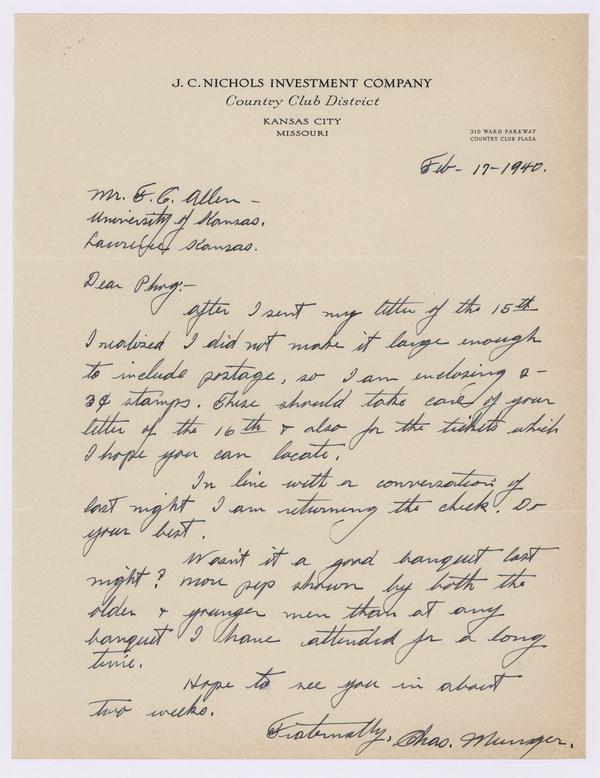 J. C. NICHOLS INVESTMENT COMPANY
Country Club District
KANSAS CITY
MISSOURI
310 WARD PARKWAY
COUNTRY CLUB PLAZA
Feb - 17 - 1940.
Mr. F. C. Allen -
University of Kansas,
Lawrence, Kansas.
Dear Phog:-
After I sent my letter of the 15th
I realized I did not make it large enough
to include postage, so I am enclosing 2-
3¢ stamps. These should take care of your
letter of the 16th & also for the tickets which
I hope you can locate.
In line with a conversation of
last night I am returning the check. Do
your best.
Wasn't it a good banquet last
night? More pep shown by both the
older & younger men than at any
banquet I have attended for a long
time.
Hope to see you in about
two weeks.
Fraternally, Chas. Munger.